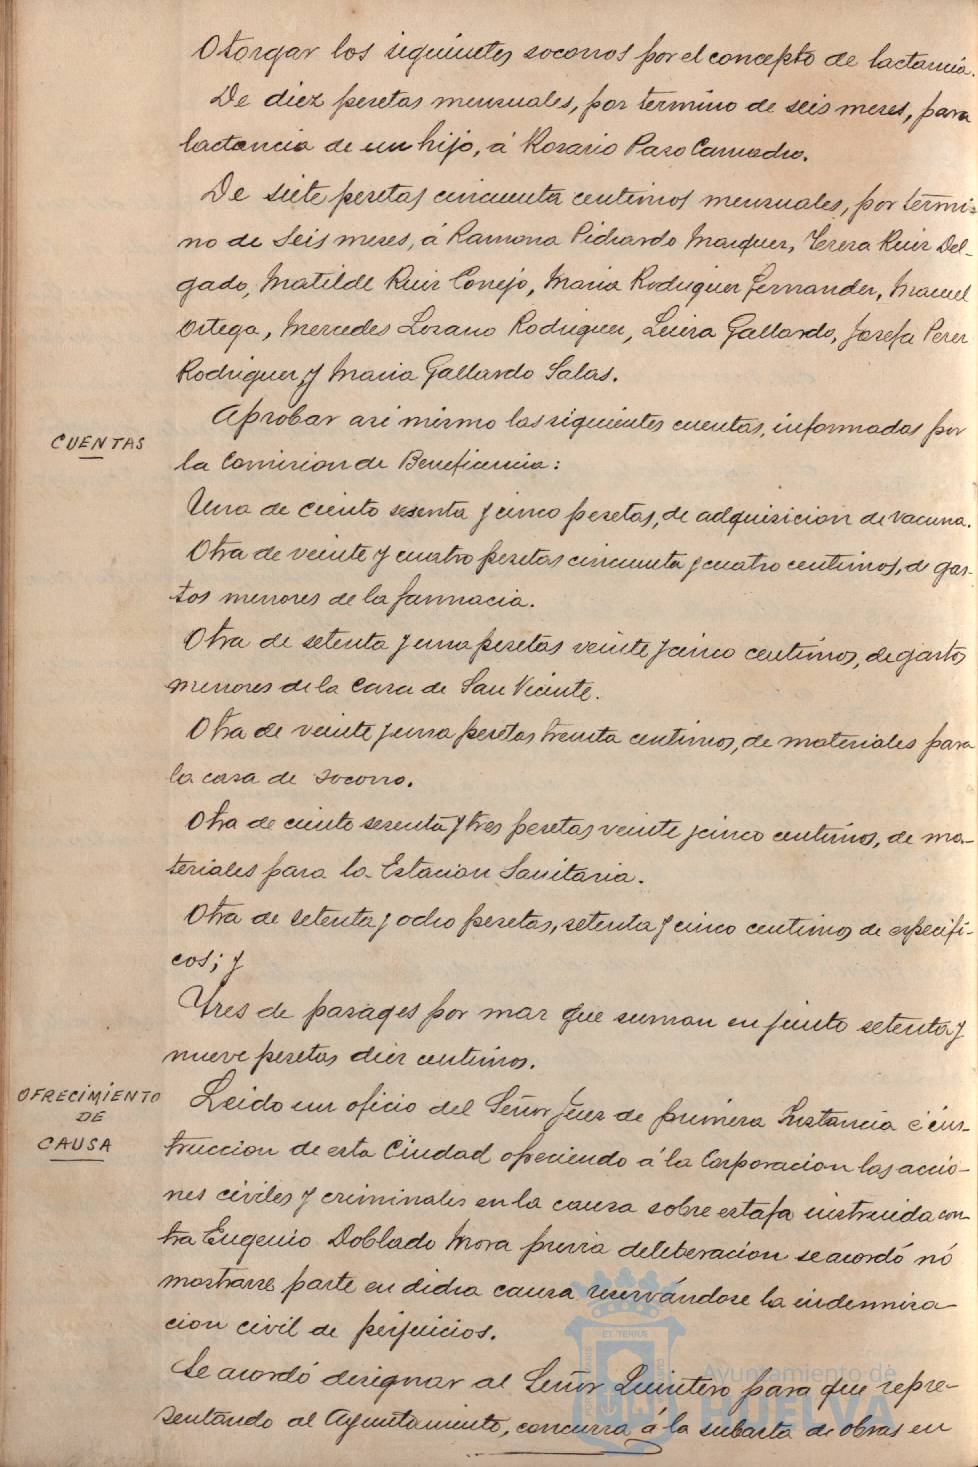 Otorgar los siguientes socorros por el concepto de lactancia.
De diez pesetas mensuales, por termino de seis meses, para
lactancia de un hijo, á Rosario Pazo Camacho.
De siete pesetas cincuenta centimos mensuales, por termi-
no de seis meses, á Ramona Pichardo Marquez, Teresa Ruiz Del-
gado, Matilde Ruiz Conejo, Maria Rodriguez Fernandez, Manuel
Ortega, Mercedes Lozano Rodriguez, Luisa Gallardo, Josefa Perez
Rodriguez y Maria Gallardo Salas.
CUENTAS
Aprobar asi mismo las siguientes cuentas, informadas por
la Comision de Beneficencia:
Una de ciento sesenta y cinco pesetas, de adquisicion de vacuna.
Otra de veinte y cuatro pesetas cincuenta y cuatro centimos, de gas-
tos menores de la farmacia.
Otra de setenta y una pesetas veinte y cinco centimos, de gastos
menores de la Casa de San Vicente.
Otra de veinte y una pesetas treinta centimos, de materiales para
la casa de socorro.
Otra de ciento sesenta y tres pesetas veinte y cinco centimos, de ma-
teriales para la Estacion Sanitaria.
Otra de setenta y ocho pesetas, setenta y cinco centimos de especifi-
cos; y
Tres de pasages por mar que suman en junto setenta y
nueve pesetas diez centimos.
OFRECIMIENTO
DE
CAUSA
Leido un oficio del Señor Juez de primera Instancia é ins-
truccion de esta Ciudad ofreciendo á la Corporacion las accio-
nes civiles y criminales en la causa sobre estafa instruida con-
tra Eugenio Doblado Mora previa deliberacion se acordó nó
mostrarse parte en dicha causa reservándose la indemniza-
cion civil de perjuicios.
Se acordó designar al Señor Quintero para que repre-
sentando al Ayuntamiento, concurra á la subasta de obras en
Ayuntamiento de
HUELVA